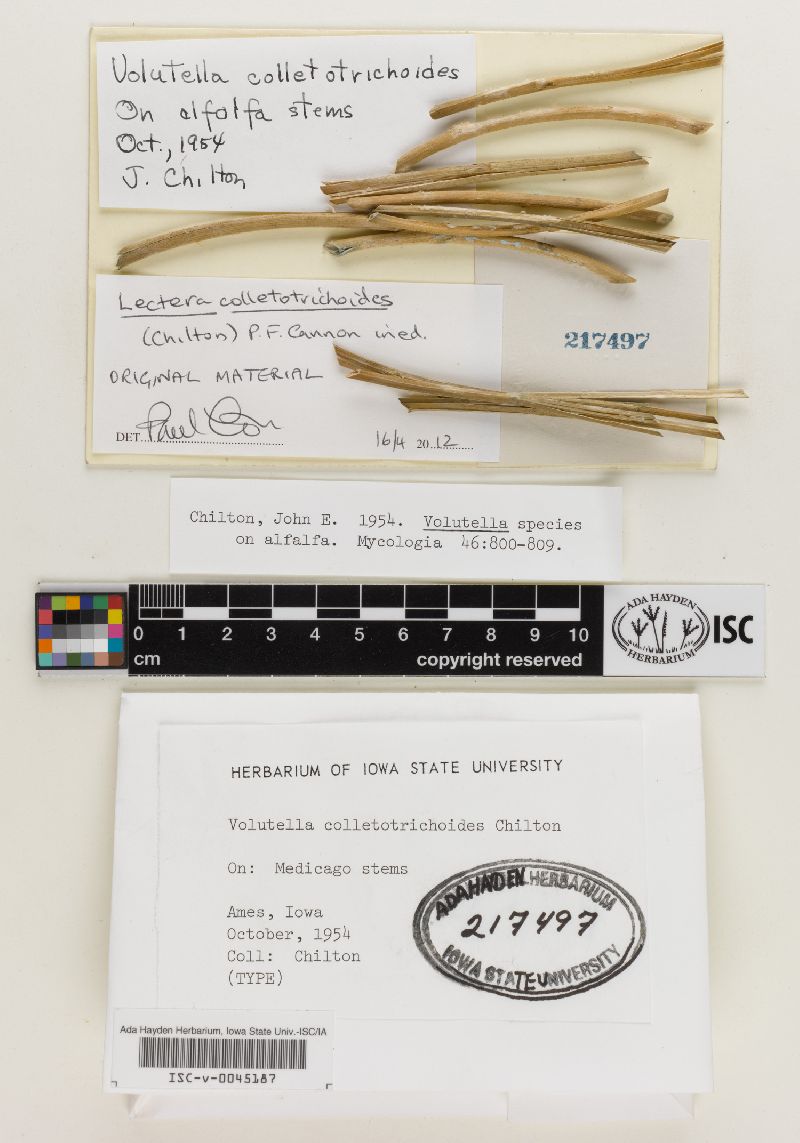 Volutella colletotrichoides
On alfolfa stems
Oct., 1954
J. Chilton
Lectera colletotrichoides
(Chilton) P.F. Cannon ined.
ORIGINAL MATERIAL
DET.
16/4 20.12
217497
Chilton, John E. 1954. Volutella species
on alfalfa. Mycologia 46:800-809.
0 1 2 3 4 5 6 7 8 9 10
cm copyright reserved
ADA HAYDEN
HERBARIUM
ISC
HERBARIUM OF IOWA STATE UNIVERSITY
Volutella colletotrichoides Chilton
On: Medicago stems
Ames, Iowa
October, 1954
Coll: Chilton
(TYPE)
ADA HAYDEN HERBARIUM
217497
IOWA STATE UNIVERSITY
Ada Hayden Herbarium, Iowa State Univ.-ISC/IA
ISC-v-0045187